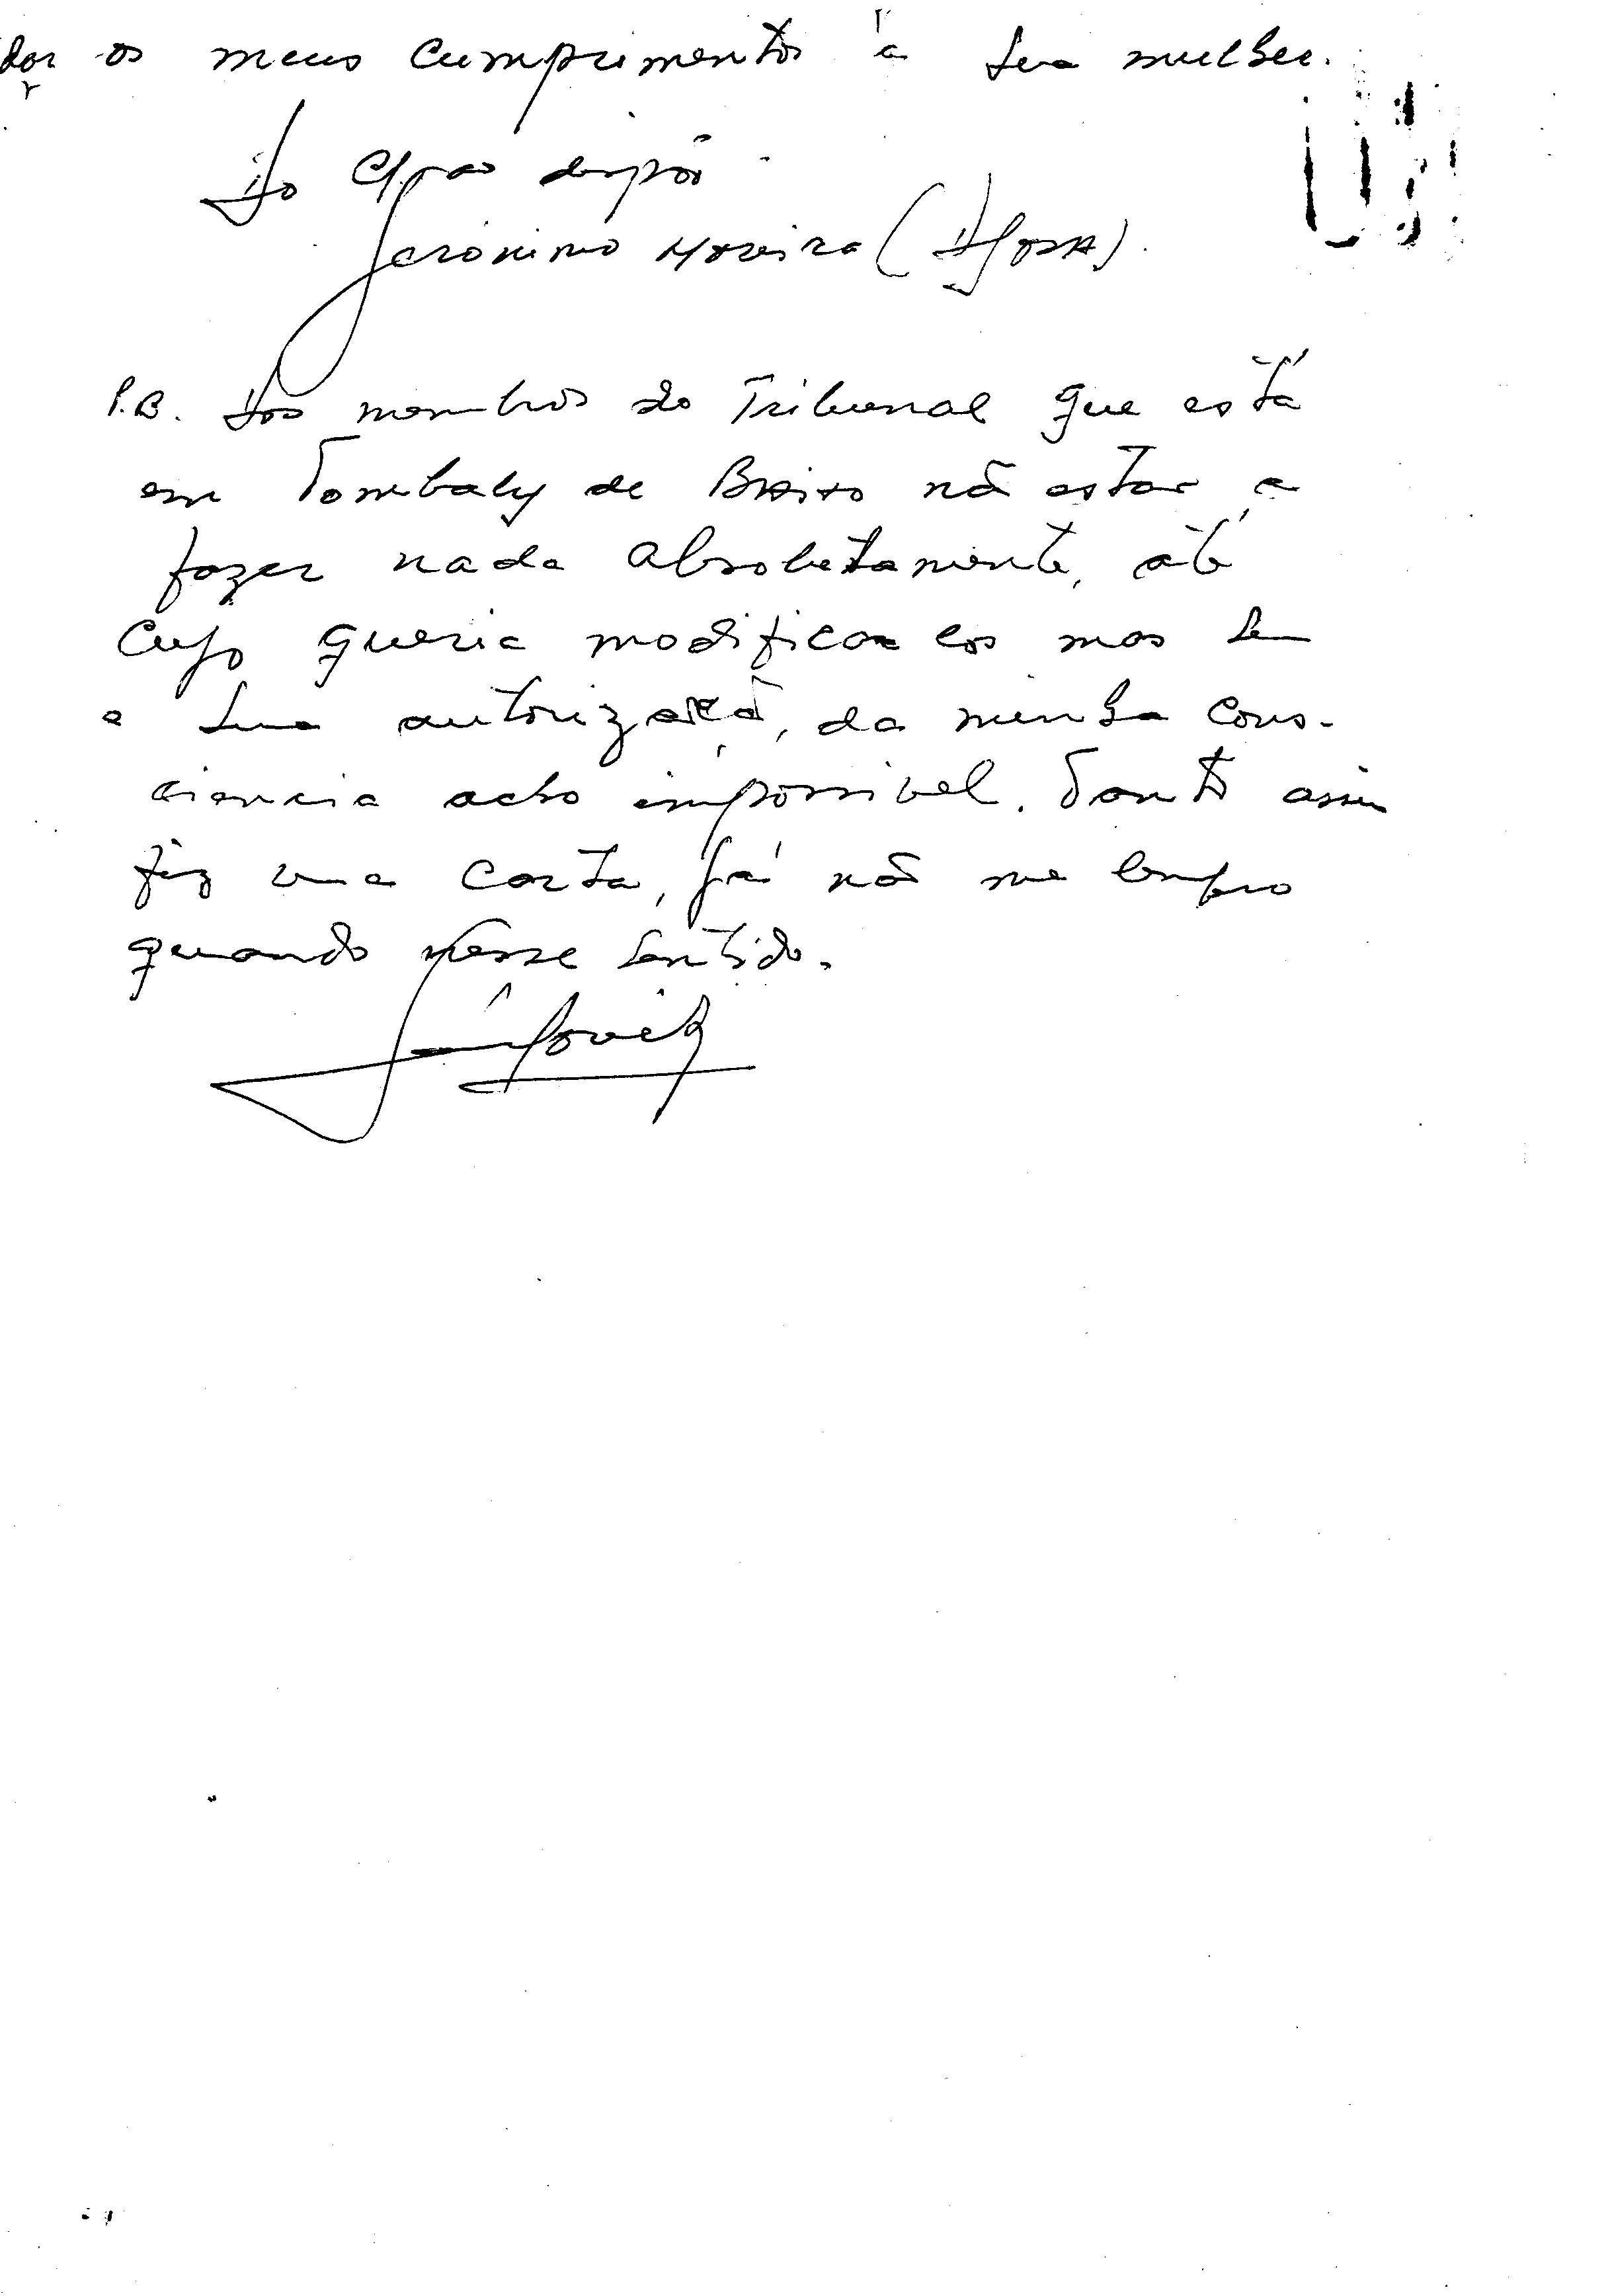 dar os meus cumprimentos à sua mulher.
do
Jerónimo Moreira (
P.B. dos membros do Tribunal que está
em Tombaly de Baixo nã estar a
fazer nada absolutamente, até
Cujo queria modificar los mas sem
a sua autorizaçã, da minha cons-
ciencia acho impossivel. Tanto assim
fiz uma carta, já nã me lembro
quando nesse sentido.